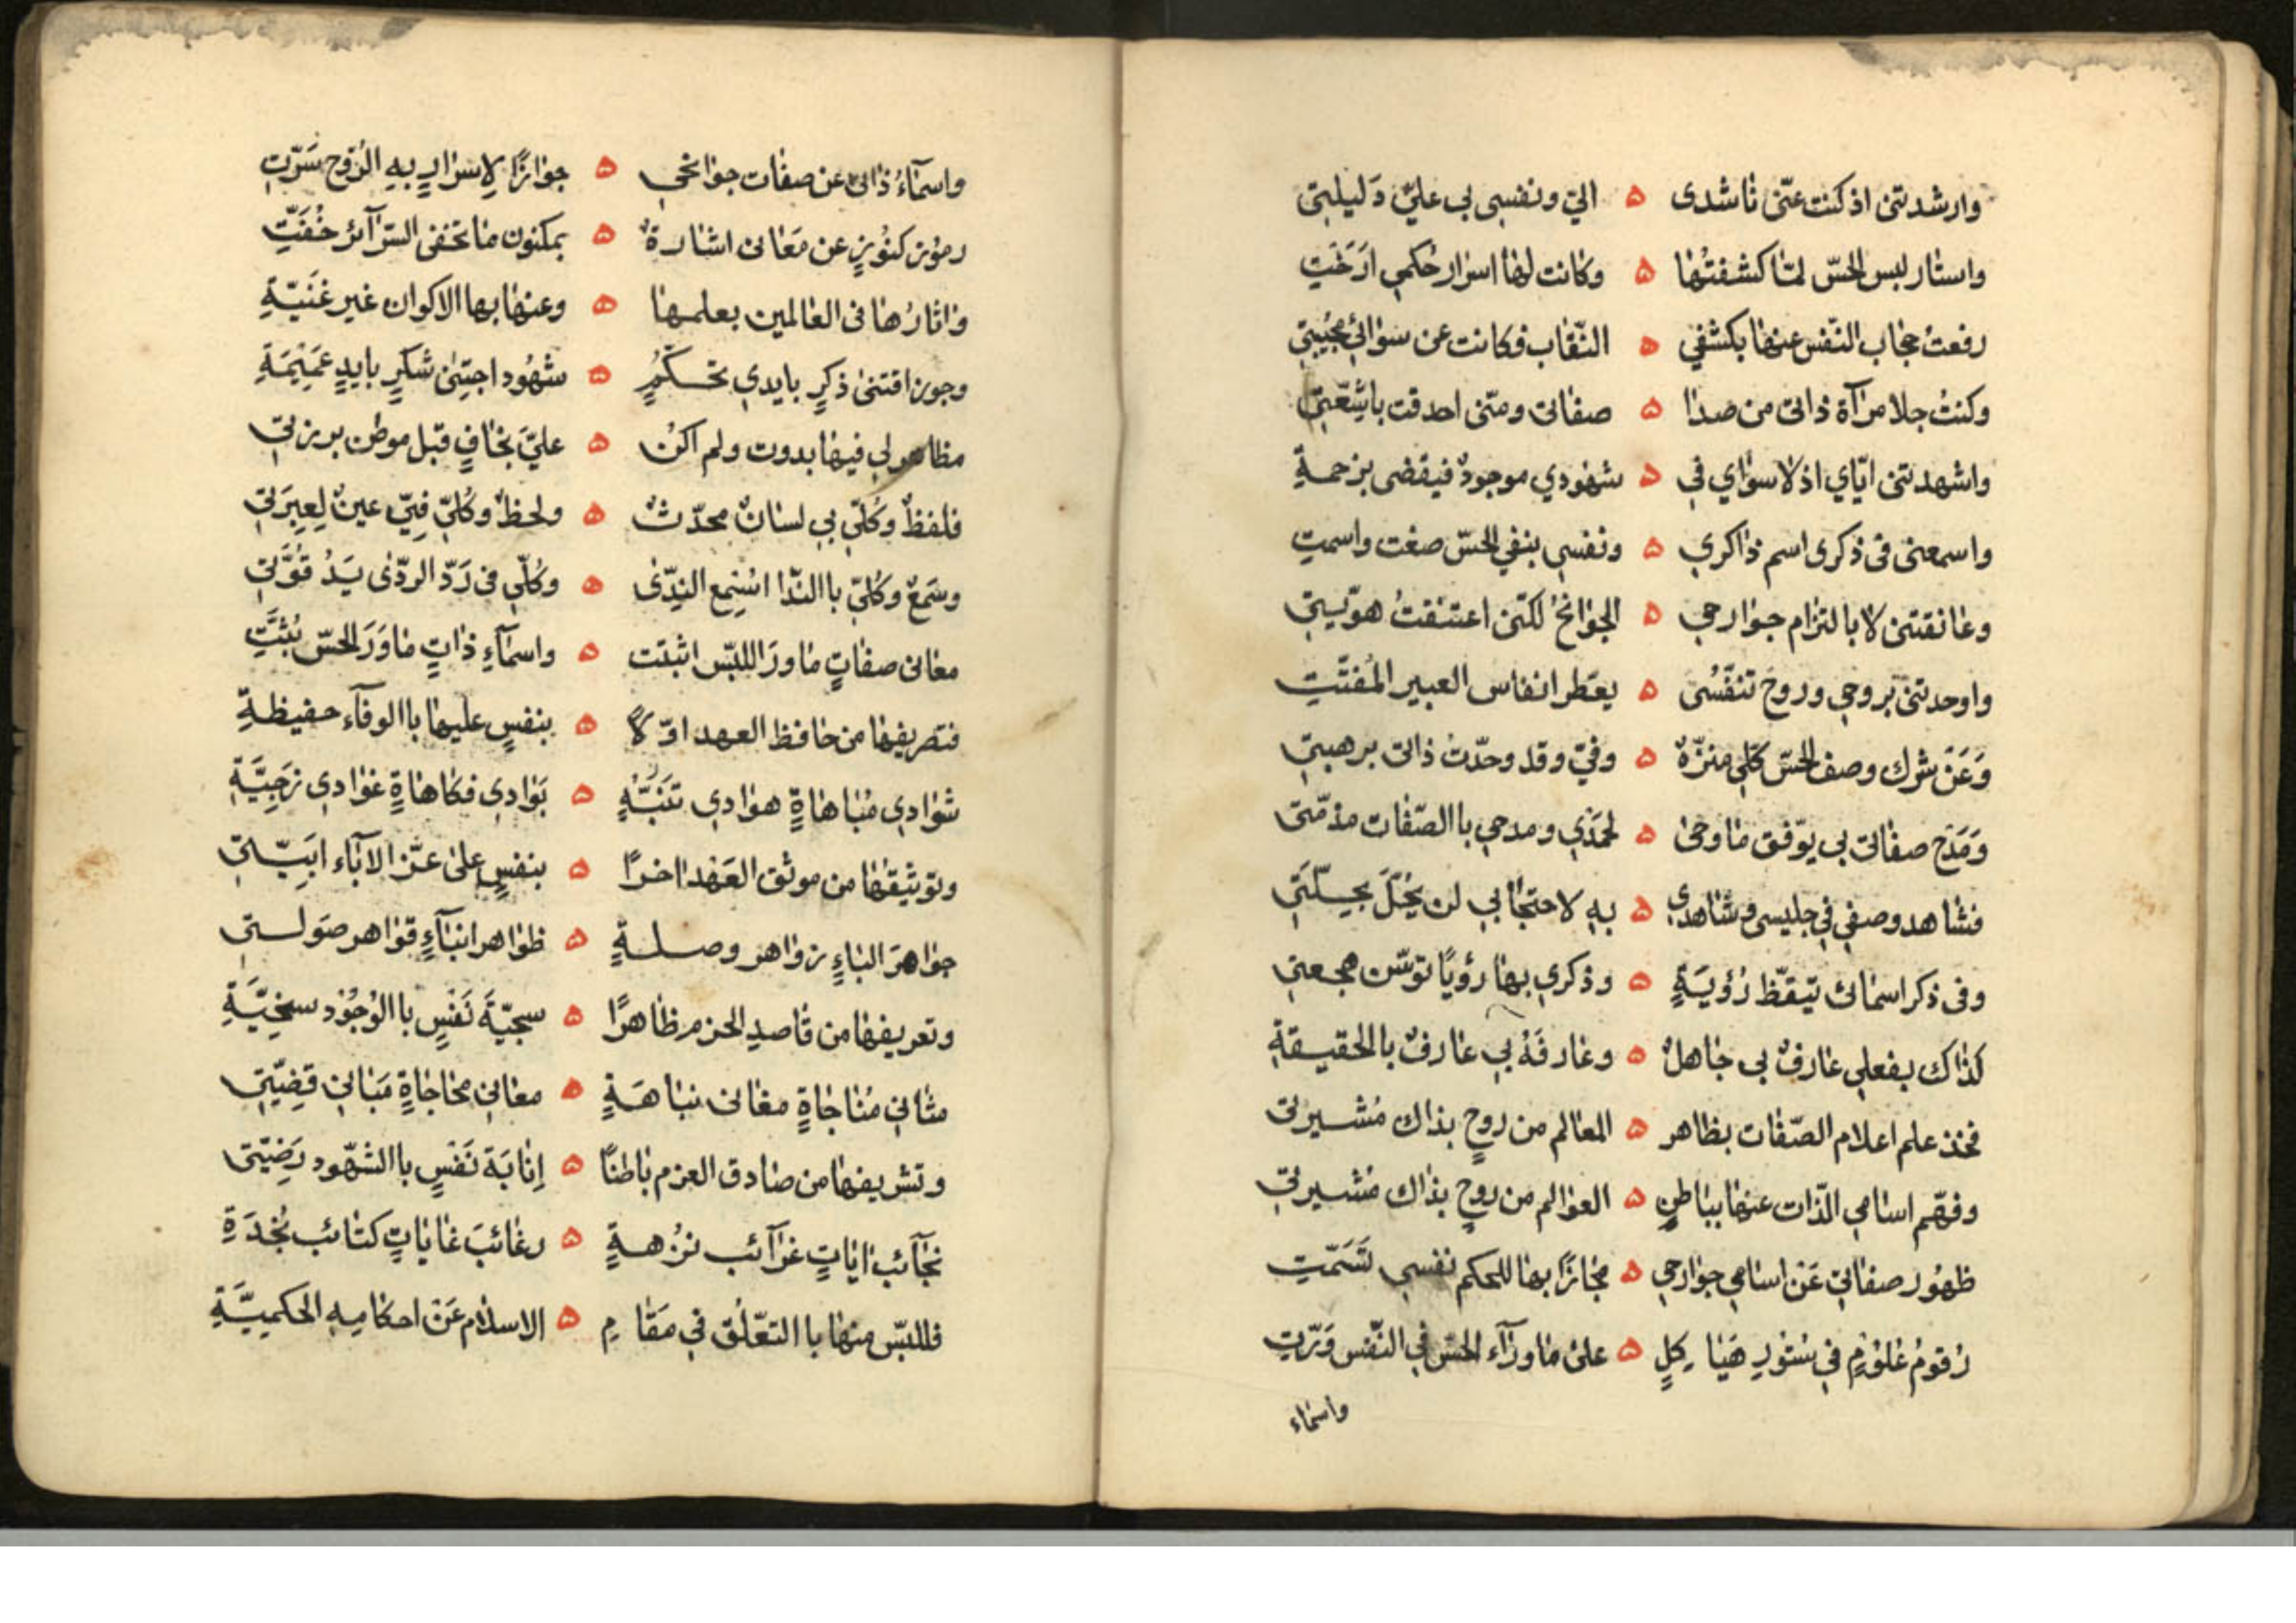 وارشدتنى اذ كنت عنّى ناشدى ۵ اليّ ونفسى بى عليّ دَليلتى
واستار لبس الحسّ لمّا كشفتُها ۵ وكانت لها اسرار حُكمى ارَخَتِ
رفعتُ حجاب النّفس عنها بكشفي ۵ النّقاب فكانت عن سوالي مجُيبتى
وكنتُ جلا مرآة ذاتى من صدا ۵ صفاتى ومنّى احدقت باشعّتى
واشهدتنى ايّاي اذ لا سواي في ۵ شهودي موجودٌ فيقضى بزحمةِ
واسمعنى فى ذكرى اسم ذاكري ۵ ونفسى بنفي الحسّ صغت واسمتِ
وعانقتنى لا بالتزام جوارحى ۵ الجوانحُ لكنّى اعتنقتُ هويّتى
واوجدتنى بروحى وروحُ تنفّسُى ۵ يعَطر انفاس العبير المُفتّتِ
وَعَنْ شرك وصف الحسّ كلّى منزّهٌ ۵ وفيّ وقد وحّدتُ ذاتى برهبتى
وَمَدَحُ صفاتى بى يوّفق ماوحى ۵ لحَمْدي ومدحى باالصّفات مذمّتى
فشاهد وصفى في جليسى وشاهدي ۵ به لاحتجابى لن يحُلَّ بحيـلّتي
وفى ذكر اسمائى تيقّظ رُؤيَةٍ ۵ وذكري بها رؤيًا توسّن هجعتى
كذاك بفعلى عارفٌ بى جاهلٌ ۵ وعارفَهُ بى عارفٌ بالحقيقةِ
فخذ علم اعلام الصّفات بظاهر ۵ المعالم من روحٍ بذاك مُشيرتى
وفهّم اسامى الذّات عنها بباطنٍ ۵ العوالم من روحٍ بذاك مُشيرتى
ظهُور صفاتى عَنْ اسامى جوارحى ۵ مجازًا بها للحكم نفسى تَسَمّتِ
رُقومُ علومٍ فى سُتورِ هيَاكِلٍ ۵ على ماورآء الحسّ في النّفس وَرّتِ
واسماء
واسمآءُ ذاتى عن صفات جوانحي ۵ جوازًا لاسرارٍ بهِ الرّوح سَرّتِ
رموز كنُوزٍ عن مَعانى اشارةٌ ۵ بمكنون ماتخفى السّرآئر حُفَّتِ
واثارُها فى العالمين بعلمها ۵ وعنها بها الاكوان غير غَنيّةِ
وجود اقتنى ذكرٍ بايدي تحكّمٍ ۵ شهُود اجتِنى شكرٍ بايدٍ عَمِيْمَةِ
مظاهر لى فيها بدوت ولم اكنْ ۵ عليّ بخافٍ قبل موطن برزتى
فلفظٌ وكُلّي بى لسانٌ محدّثٌ ۵ ولحظٌ وكُلّيّ فيّ عينٌ لعِبرَتى
وسَمعٌ وكُلّيّ باالنّدا اسْمِع النِّدَى ۵ وكُلّي فى رَدّ الردّى يَدُ قُوّتى
معانى صفاتٍ ماورَا اللبّس اثبتت ۵ واسمآءِ ذاتٍ ماوَرَ الحسّ بُثَّتِ
فتصريفها من حافظ العهد اوّلًا ۵ بنفسٍ عليها باالوفآء حفيظةِ
شوادي مُباهاةٍ هوادى تَنَبُّهٍ ۵ بَوادى فكاهاةٍ غوادى رَجِيَّةِ
وتوثيقها من موثق العَهْد اخرًا ۵ بنفسٍ على عزّ الابآء ابَيّتى
جواهرَ انباءٍ زواهر وصلةٍ ۵ ظواهر انبآءٍ قواهر صَولتى
وتعريفها من قاصدِ الحزم ظاهرًا ۵ سجيّةَ نَفسٍ باالوُجُوْد سخِيَّةِ
مثانى مُناجاةٍ معانى نباهَةٍ ۵ معانى محاجاةٍ مَبانى قضِيّتى
وتشريفها من صادق العزم باطنًا ۵ اِنابَةُ نَفسٍ باالشهّود رَضِيّتى
نجآئب اياتٍ غرآئب نزْهةٍ ۵ رغائبَ غاياتٍ كتائب نجُدَةِ
فللبّس منها باالتعّلُق في مَقامِ ۵ الاسلام عَنْ احكامِهِ الحكميَّةِ